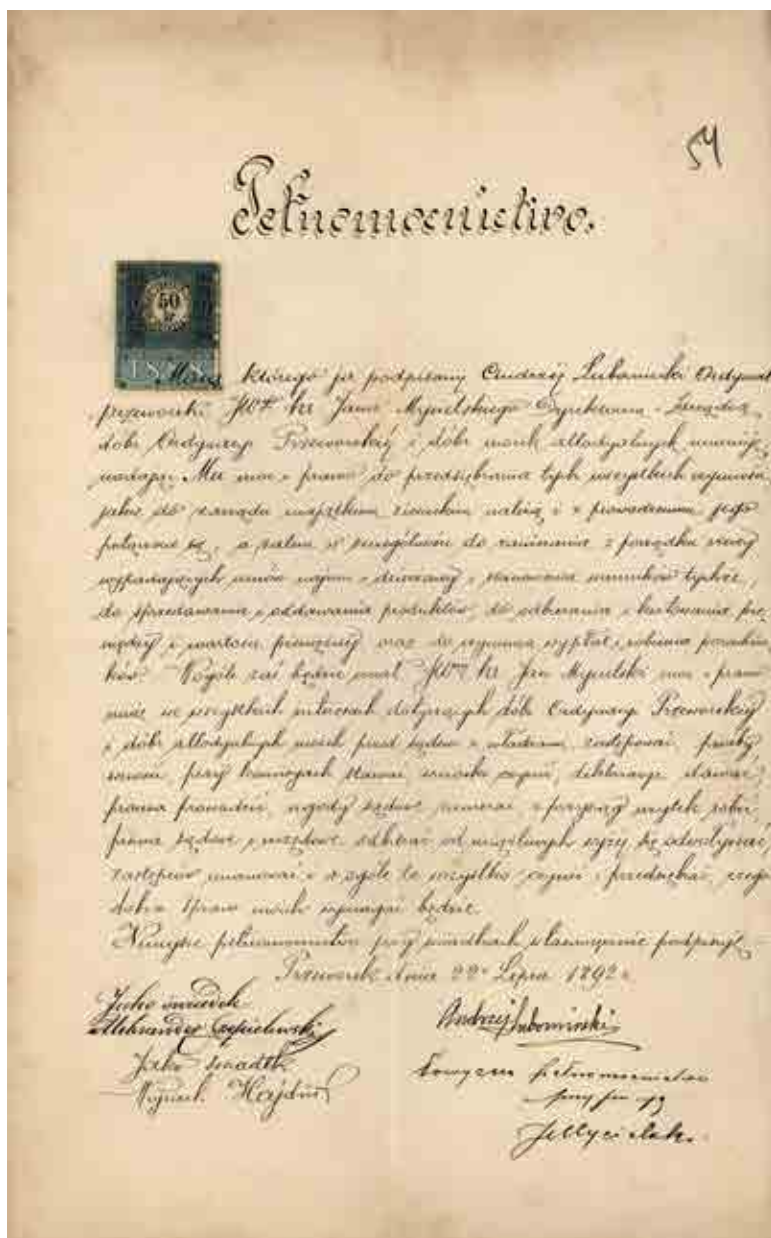 54
Pełnomocnictwo.
50
kr
1888
Mocą którego ja podpisany Andrzej Lubomirski Ordynat
przeworski JWP hr Jana Mycielskiego Dyrektorem
dóbr Ordynacyi Przeworskiej i dóbr moich allodyalnych
nadając Mu moc i prawo do przedsiębrania tych wszystkich czynności,
jakie do zarządu majątkiem ziemskim należą i z prowadzeniem jego
połączone są, a zatem w szczególności do zawierania z porządku rzeczy
wypadających umów najmu i dzierżawy i stanowienia warunków tychże,
do sprzedawania i oddawania produktów, do odbierania i kwitowania pie
niędzy i wartości pieniężnych oraz do czynienia wypłat i robienia porachun
ków. Wogóle zaś będzie miał JWP hr Jan Mycielski moc i prawo
mnie we wszystkich interesach dotyczących dóbr Ordynacyi Przeworskiej
i dóbr allodyalnych moich przed sądem i władzami zastępować, prośby
wnosić, przy komisyach stawać, wnioski czynić, deklaracye dawać,
prawa prowadzić, ugody sądowe zawierać, z przysiąg użytek robić,
pisma sądowe i urzędowe odbierać, od uciążliwych wyżej się odwoływać,
zastępców mianować i w ogóle to wszystko czynić i przedsiębrać, czego
dobro spraw moich wymagać będzie.
Niniejsze pełnomocnictwo przy świadkach własnoręcznie podpisuję
Przeworsk dnia 22 Lipca 1892 r.
Jako świadek
Aleksander
Andrzej Lubomirski
Jako świadek
Wojciech Hajduk
pełnomocnictwo
przyjmuję
JMycielski